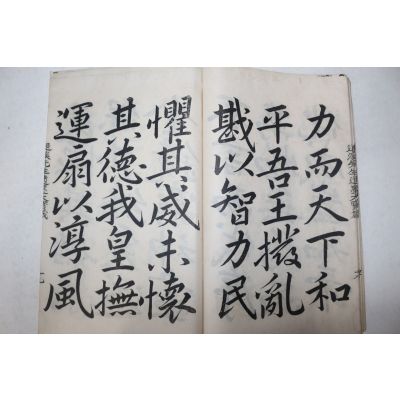 力而天下和
平吾王撥亂
戡以智力民
懼其威未懷
其德我皇撫
運扇以淳風